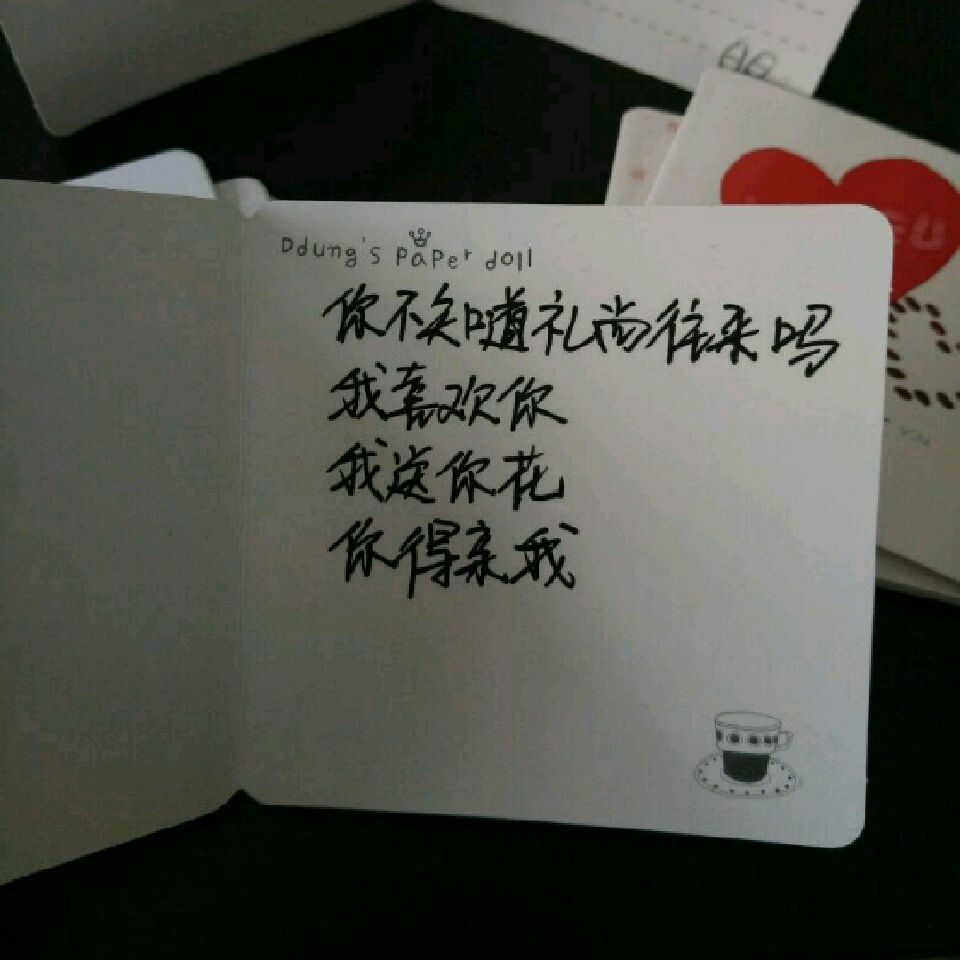 Ddung's paper doll
你不知道礼尚往来吗
我喜欢你
我送你花
你得亲我